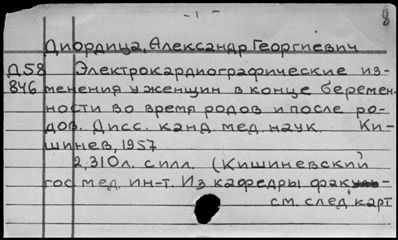 - 1 -
8
Диордица, Александр Георгиевич
Д58 Электрокардиографические из-
846 менения у женщин в конце беремен-
ности во время родов и после ро-
дов. Дисс. канд. мед. наук. Ки-
шинев, 1957
2, 310 л. с илл. (Кишиневский
гос. мед. ин-т. Из кафедры
см. след. карт